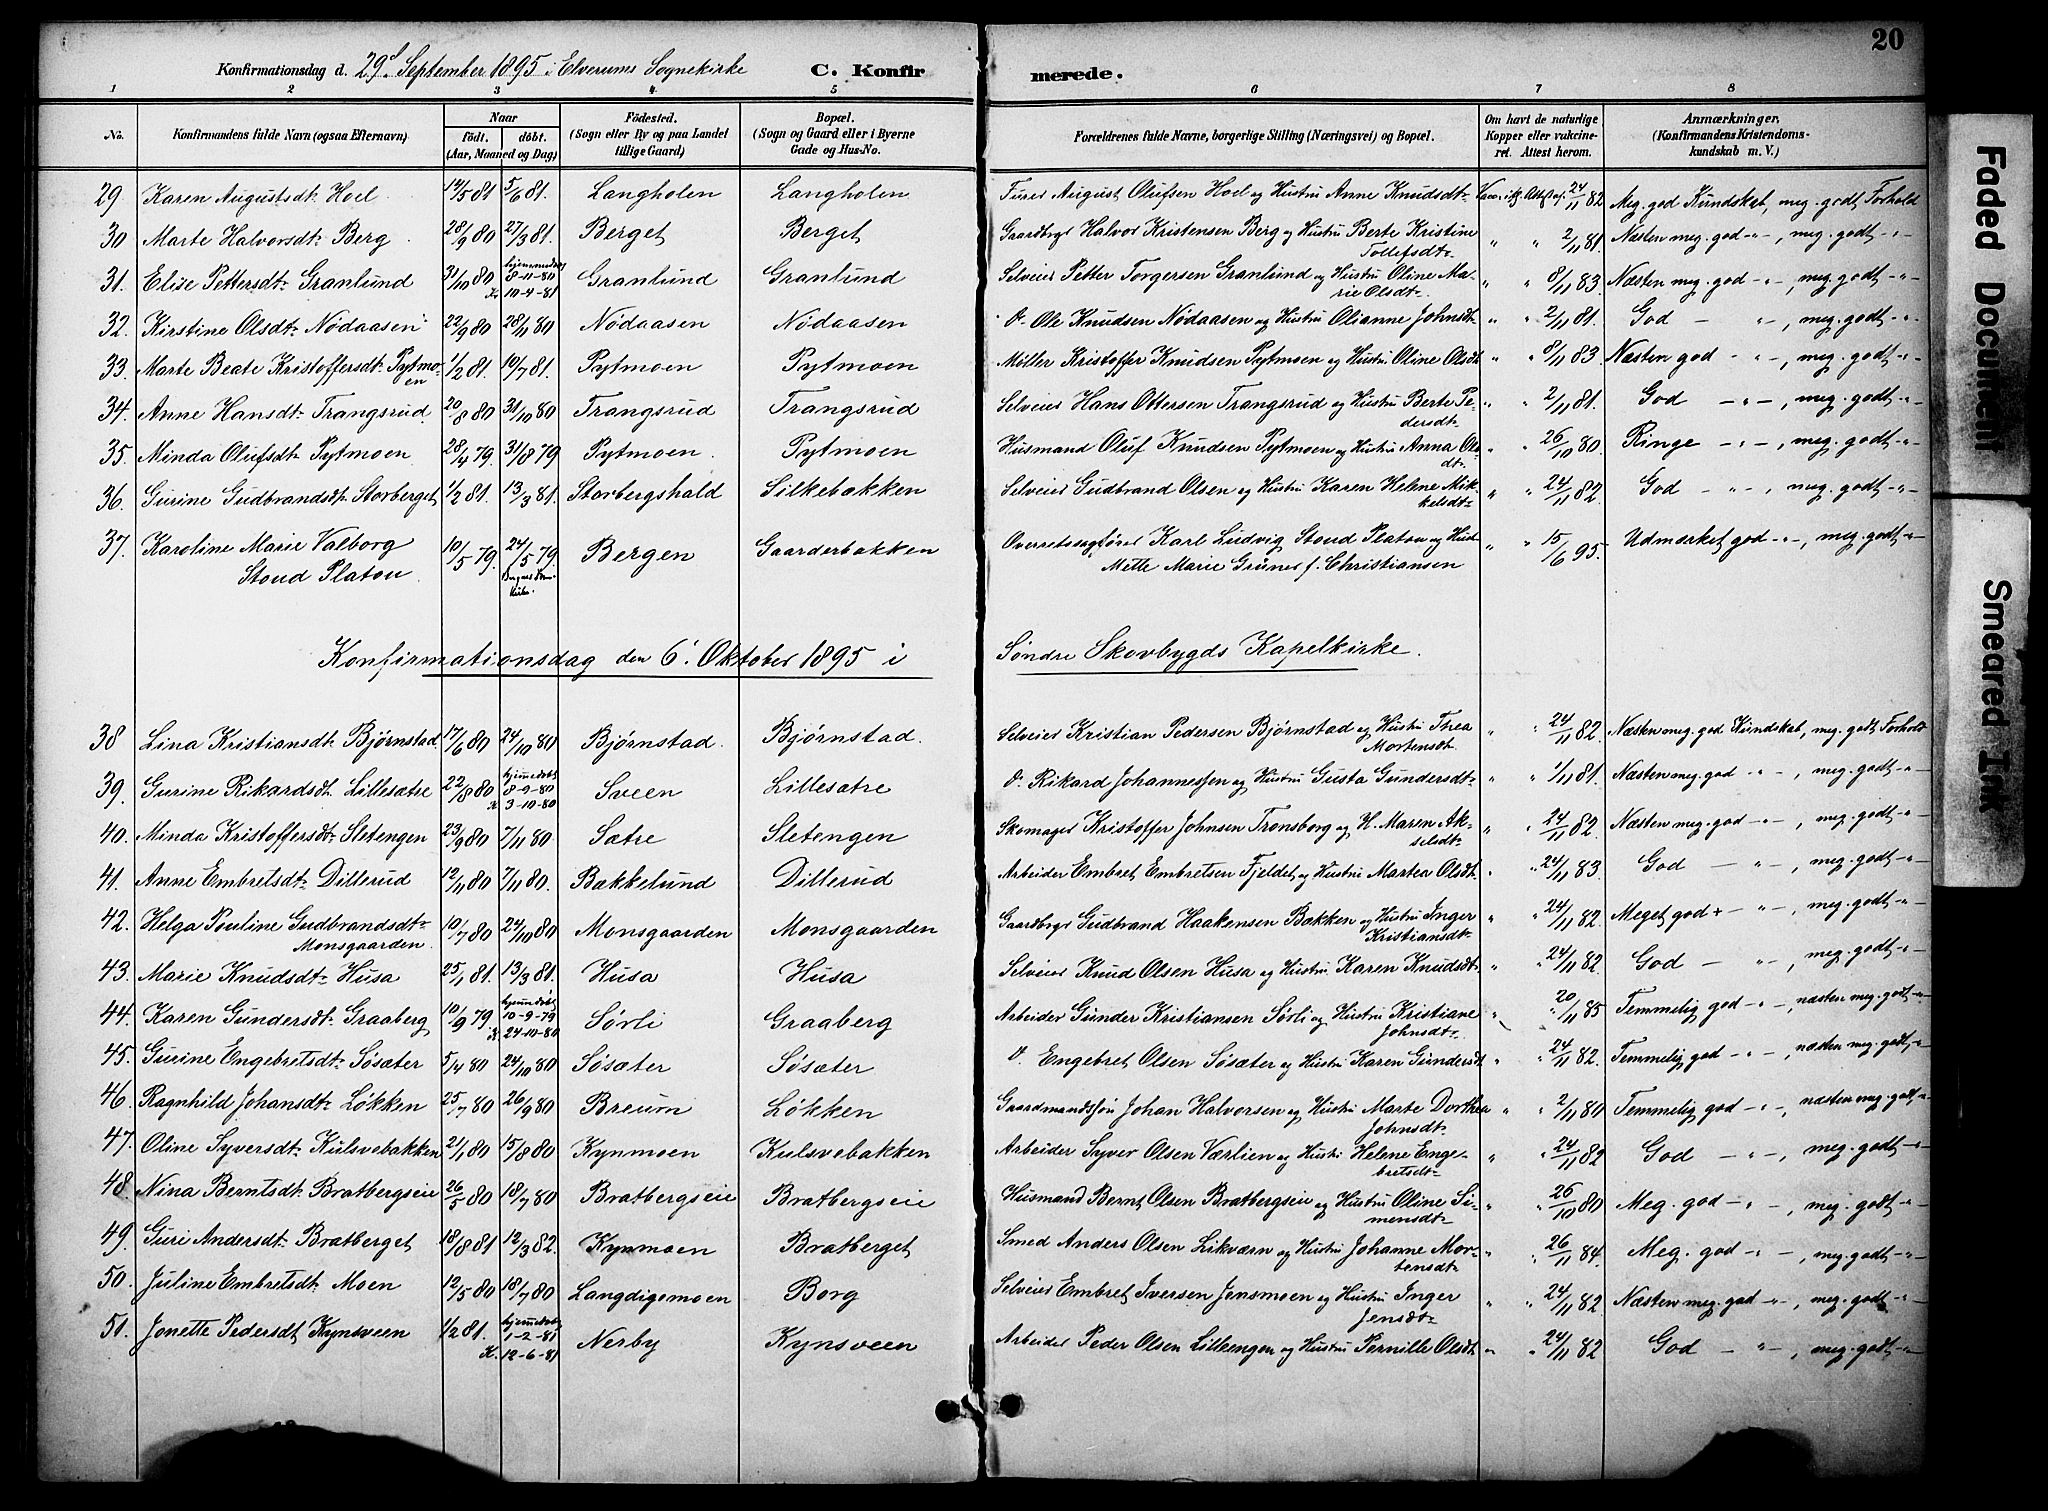 20
Konfirmationsdag d. 29d September 1895 i Elverums Sognekirke C. Konfirmerede.
1 2 3 4 5 6 7 8
No. Konfirmandens fulde Navn (ogsaa Efternavn) Naar födt. döbt. (Aar, Maaned og Dag) Födested. (Sogn eller By og paa Landet tillige Gaard) Bopæl. (Sogn og Gaard eller i Byerne Gade og Hus-No. Forældrenes fulde Navne, borgerlige Stilling (Næringsvei) og Bopæl. Om havt de naturlige Kopper eller vakcineret. Attest herom. Anmærkninger, (Konfirmandens Kristendomskundskab m. V.)
29 Karen Augustsdtr Hoel 14/5 81 5/6 81. Langholen Langholen Furer August Olufsen Hoel og Hustru Anne Knudsdtr 24/11 82 Meg. god Kundskab, meg. godt Forhold
30 Marte Halvorsdtr Berg 28/9 80 27/3 81. Berget Berget Gaardbrgr Halvor Kristensen Berg og Hustru Berte Kristine Tollefsdtr " " 2/11 81. Næsten meg. god -"-, meg. godt -"-
31. Elise Pettersdtr Granlund 31/10 80 hjemmedøbt 8-11-80 K. 10-4-81 Granlund Granlund Selveier Petter Torgersen Granlund og Hustru Oline Marie Olsdtr " " 8/11 83. Næsten meg. god -"-, meg. godt -"-
32. Kirstine Olsdtr Nödaasen 22/9 80 28/11 80 Nödaasen Nödaasen d. Ole Knudsen Nödaasen og Hustru Olianne Johnsdtr " " 2/11 81. God -"-, meg. godt -"-
33. Marte Beate Kristoffersdtr Pytmoen 1/2 81. 10/7 81. Pytmoen Pytmoen Möller Kristoffer Knudsen Pytmoen og Hustru Oline Olsdtr " " 8/11 83 Næsten god -"-, meg. godt -"-
34. Anne Hansdtr Trangsrud 20/8 80 31/10 80 Trangsrud Trangsrud Selveier Hans Ottersen Trangsrud og Hustru Berte Pedersdtr " " 2/11 81. God -"-, meg. godt -"-
35. Minda Olufsdtr Pytmoen 28/4 79. 31/8 79 Pytmoen Pytmoen Husmand Oluf Knudsen Pytmoen og Hustru Anna Olsdtr " " 26/10 80 Ringe -"-, meg. godt -"-
36. Gurine Gudbrandsdtr Storberget 1/2 81. 13/3 81. Storbergshald Silkebakken Selveier Gudbrand Olsen og Hustru Karen Helene Mikkelsdtr " " 24/11 82. God -"-, meg. godt -"-
37. Karoline Marie Valborg Stoud Platou 10/5 79. 24/5 79 Bergens Domkirke. Bergen Gaarderbakken Overretssagfører Karl Ludvig Stoud Platou og Hust. Mette Marie Grüner f. Christiansen " " 15/6 95. Udmærket god -"-, meg. godt -"-
Konfirmationsdag den 6. Oktober 1895 i Søndre Skovbygds Kapelkirke.
38 Lina Kristiansdtr Bjørnstad 17/6 80 24/10 80 Bjørnstad. Bjørnstad. Selveier Kristian Pedersen Bjørnstad og Hustru Thea Mortensdtr " " 24/11 82. Næsten meg. god Kundskab, meg. godt Forhold
39. Gurine Rikardsdtr Lillesætre 22/8 80 hjemmedøbt 8-9-80 K. 3-10-80 Sveen Lillesætre d. Rikard Johannessen og Hustru Gusta Gundersdtr " " 1/11 81. Næsten meg. god -"-, meg. godt -"-
40. Minda Kristoffersdtr Sletengen 23/9 80 7/11 80 Sætre Sletengen Skomager Kristoffer Johnsen Tronsborg og H. Maren Akselsdtr " " 24/11 82. Næsten meg. god -"-, meg. godt -"-
41. Anne Embretsdtr Dillerud 12/11 80 7/11 80. Bækkelund Dillerud Arbeider Embret Embretsen Fjeldet og Hustru Martea Olsdtr " " 24/11 83. God -"-, meg. godt -"-
42. Helga Pouline Gudbrandsdtr Monsgaarden 10/7 80 24/10 80 Monsgaarden Monsgaarden Gaardbrgr Gudbrand Haakensen Bakken og Hustru Inger Kristiansdtr " " 24/11 82. Meget god + -"-, meg. godt -"-
43. Marie Knudsdtr Husa 25/1 81. 13/3 81. Husa Husa Selveier Knud Olsen Husa og Hustru Karen Knudsdtr " " 24/11 82. God -"-, meg. godt -"-
44. Karen Gundersdtr Graaberg 10/9 79 hjemmedøbt 10-9-79 K. 24-10-80 Sørli Graaberg Arbeider Gunder Kristiansen Sørli og Hustru Kristiane Johnsdtr " " 20/11 85 Temmelig god -"-, næsten meg. godt -"-
45. Gurine Engebretsdtr Søsæter 5/4 80 24/10 80 Søsæter Søsæter d. Engebret Olsen Søsæter og Hustru Karen Gundersdtr " " 24/11 82. Temmelig god -"-, næsten meg. godt -"-
46. Ragnhild Johansdtr Løkken 25/7 80 26/9 80 Breum Løkken Gaardmandssøn Johan Halvorsen og Hustru Marte Dorthea Johnsdtr " " 2/11 80 Temmelig god -"-, næsten meg. godt -"-
47. Oline Syversdtr Kulsvebakken 21/1 80 15/8 80 Kynmoen Kulsvebakken Arbeider Syver Olsen Værlien og Hustru Helene Engebretsdtr " " 24/11 82 God -"-, meg. godt -"-
48. Nina Berntsdtr Bratbergseie 26/5 80 18/7 80 Bratbergseie Bratbergseie Husmand Bernt Olsen Bratbergseie og Hustru Oline Simensdtr " " 26/10 80 Meg. god -"-, meg. godt -"-
49. Guri Andersdtr Bratberget 18/8 81 12/3 82. Kynmoen Bratberget Smed Anders Olsen Likværn og Hustru Johanne Mortensdtr " " 26/11 84. Meg. god -"-, meg. godt -"-
50. Juline Embretsdtr Moen 12/5 80 18/7 80 Langdigemoen Borg Selveier Embret Iversen Jensmoen og Hustru Inger Jensdtr " " 24/11 82 Næsten meg. god -"-, meg. godt -"-
51. Jonette Pedersdtr Kynsveen 1/2 81. hjemmedøbt 1-2-81 K. 12-6-81 Nerby Kynsveen Arbeider Peder Olsen Lilleengen og Hustru Pernille Olsdtr " " 24/11 82 God -"-, meg. godt -"-
Faded Document
Smeared Ink